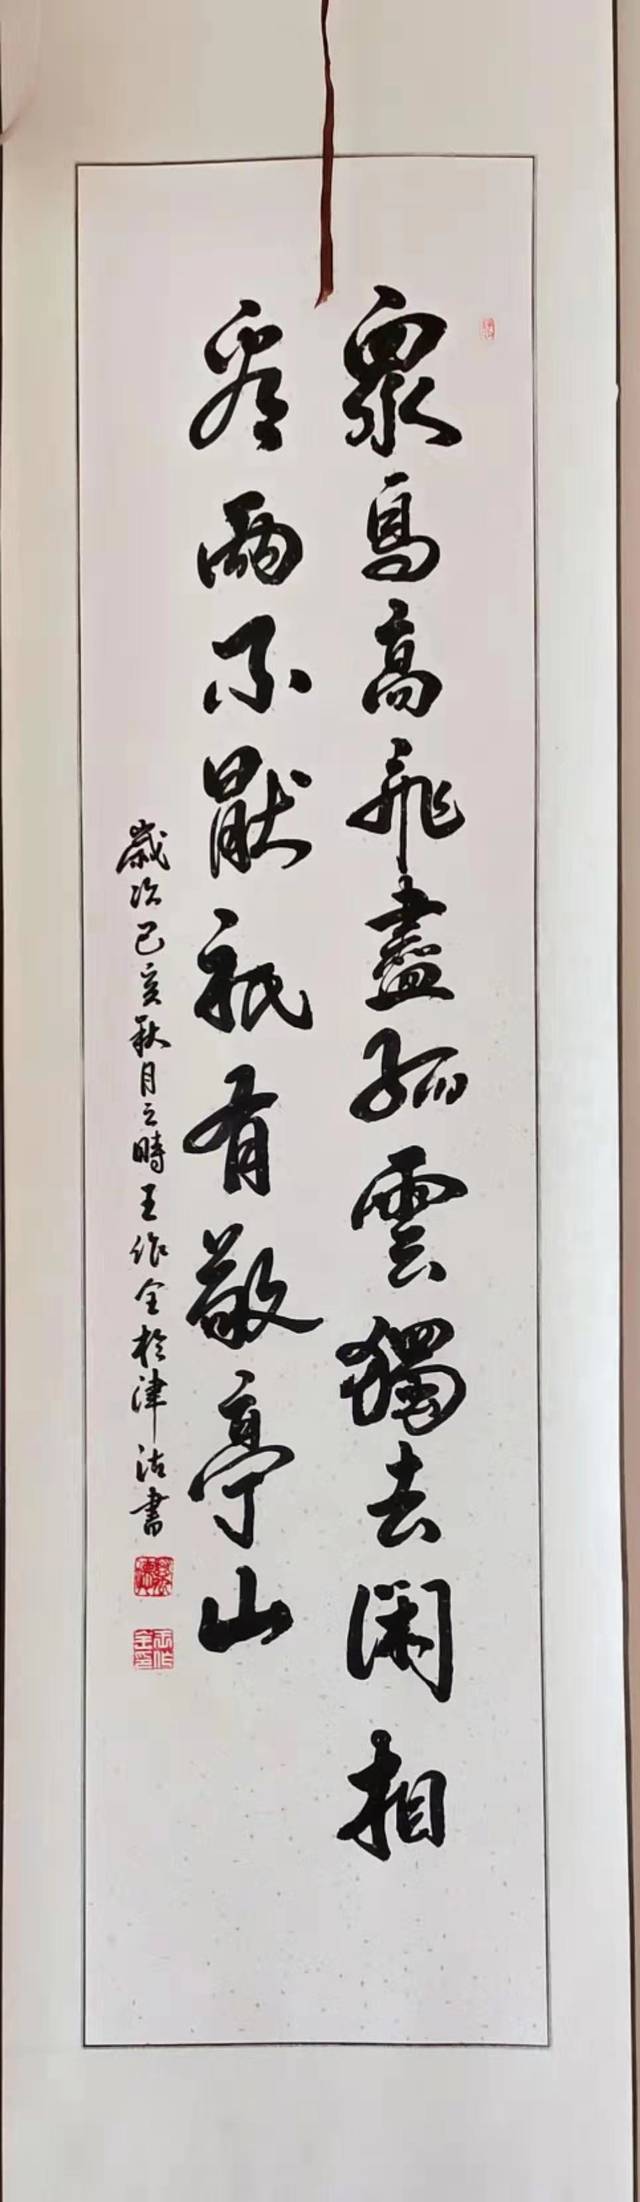 衆鳥高飛盡孤雲獨去闲相
看兩不厭祇有敬亭山
歲次己亥秋月之時王作全於津沽書
王作全印